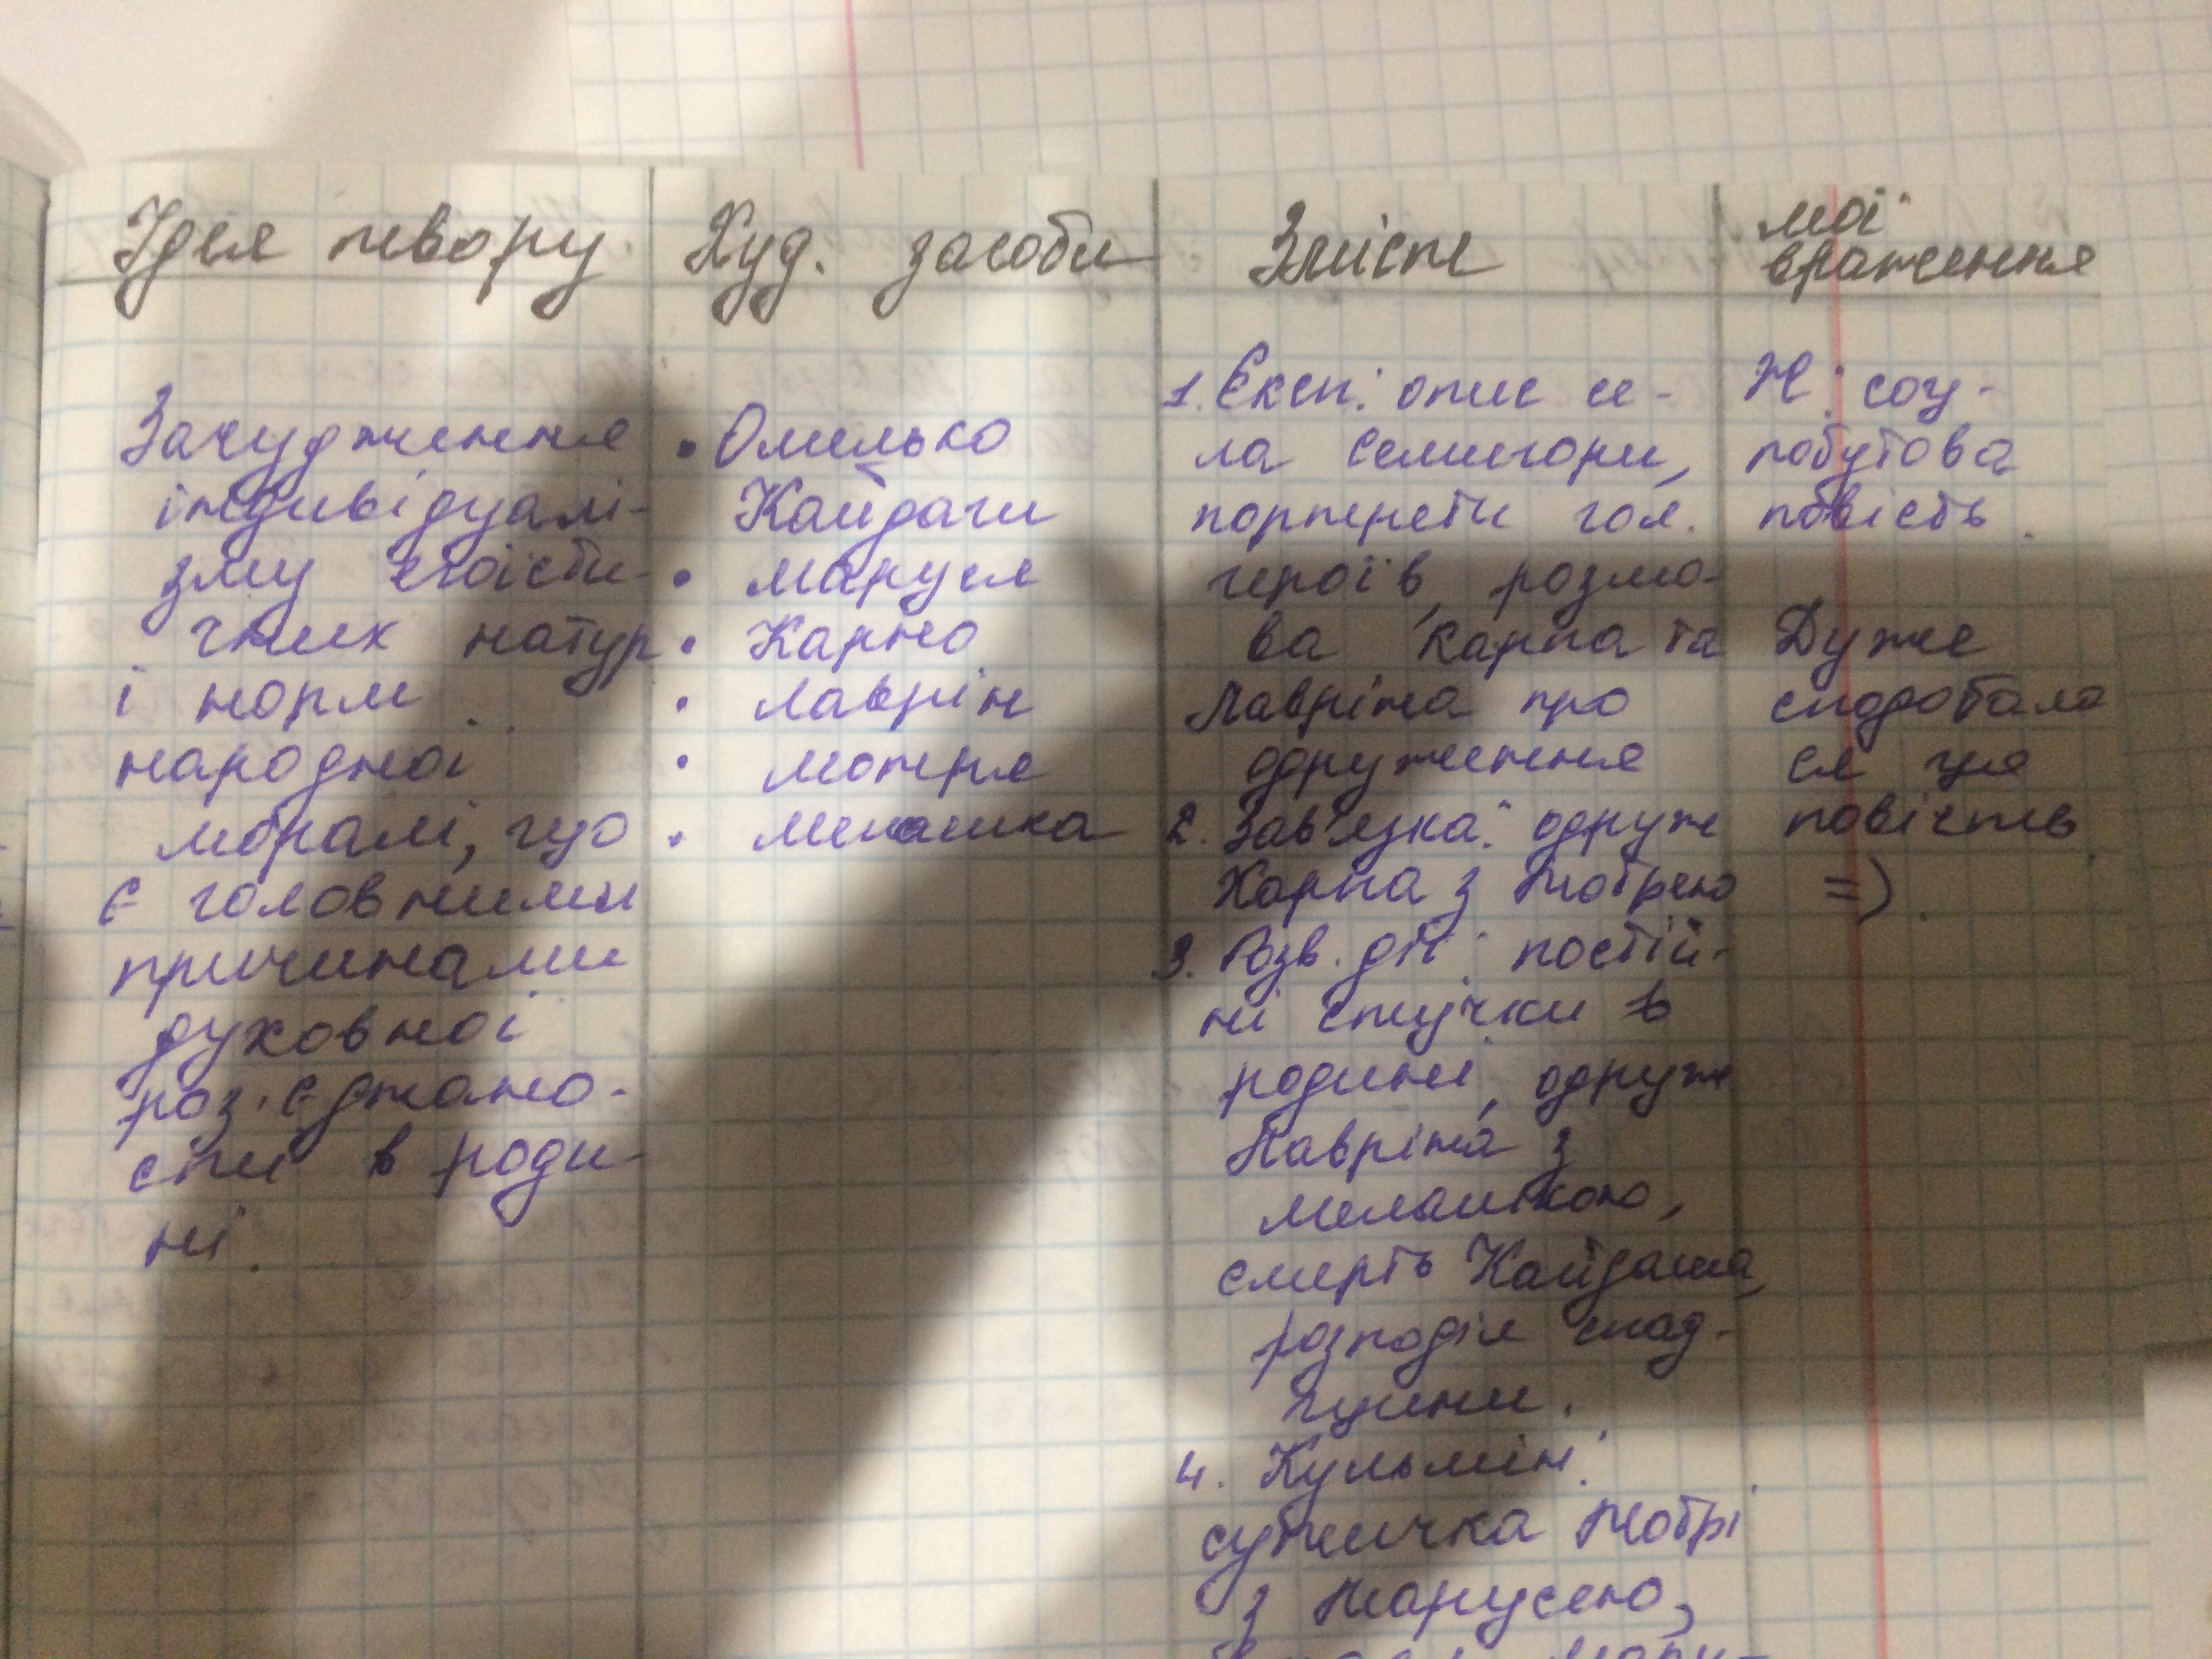 Ідея твору
Зачудження
індивідуалі-
зму егоїсти-
чних натур
і норм
народної
моралі, що
є головними
причинами
духовної
роз'єднано-
сти в роди-
ні.
Худ. засоби
• Омелько
Кайдаш
• Маруся
• Карпо
• Лаврін
• Мотря
• Мелашка
Зміст
1. Експ: опис се-
ла Семигори,
портрети гол.
героїв, розмо-
ва Карпа та
Лавріна про
одруження
2. Зав'язка: одруж
Карпа з Мотрею
3. Розв. дії: постій-
ні стички в
родині, одруж
Лавріна з
Мелашкою,
смерть Кайдаша,
розподіл спад-
щини.
4. Кульмін:
сутичка Мотрі
з Марусею,
мої
враження
Ж: соц-
побутова
повість.
Дуже
сподобала
ся ця
повість
=).